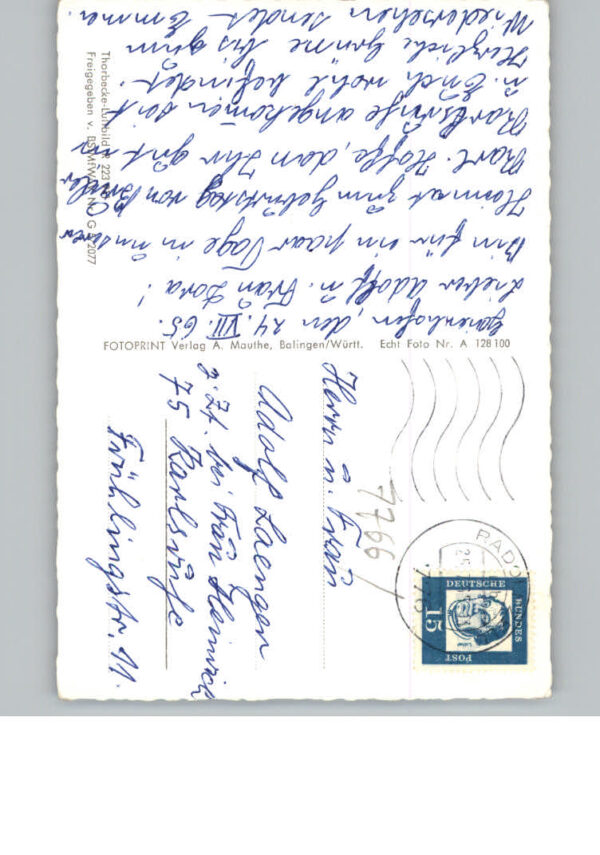 Gaienhofen, den 24. VII. 65.
Lieber Adolf u. Frau Dora!
Bin für ein paar Tage in unserer
Heimat zum Geburtstag von Bruder
Karl. Hoffe, dan Ihr gut in
Karlsruhe angekommen seit
u. Euch wohl befindet.
Herzliche Grüsse bis zum
Wiedersehen sendet Emma
Thorbecke-Luftbild
Freigegeben v.
FOTOPRINT Verlag A. Mauthe, Balingen/Württ. Echt Foto Nr. A 128 100
Herrn u. Frau
Adolf Laenger
z. Zt. bei Frau Heinrich
75 Karlsruhe
Frühlingstr. 11.
7766
DEUTSCHE
BUNDES
POST
15